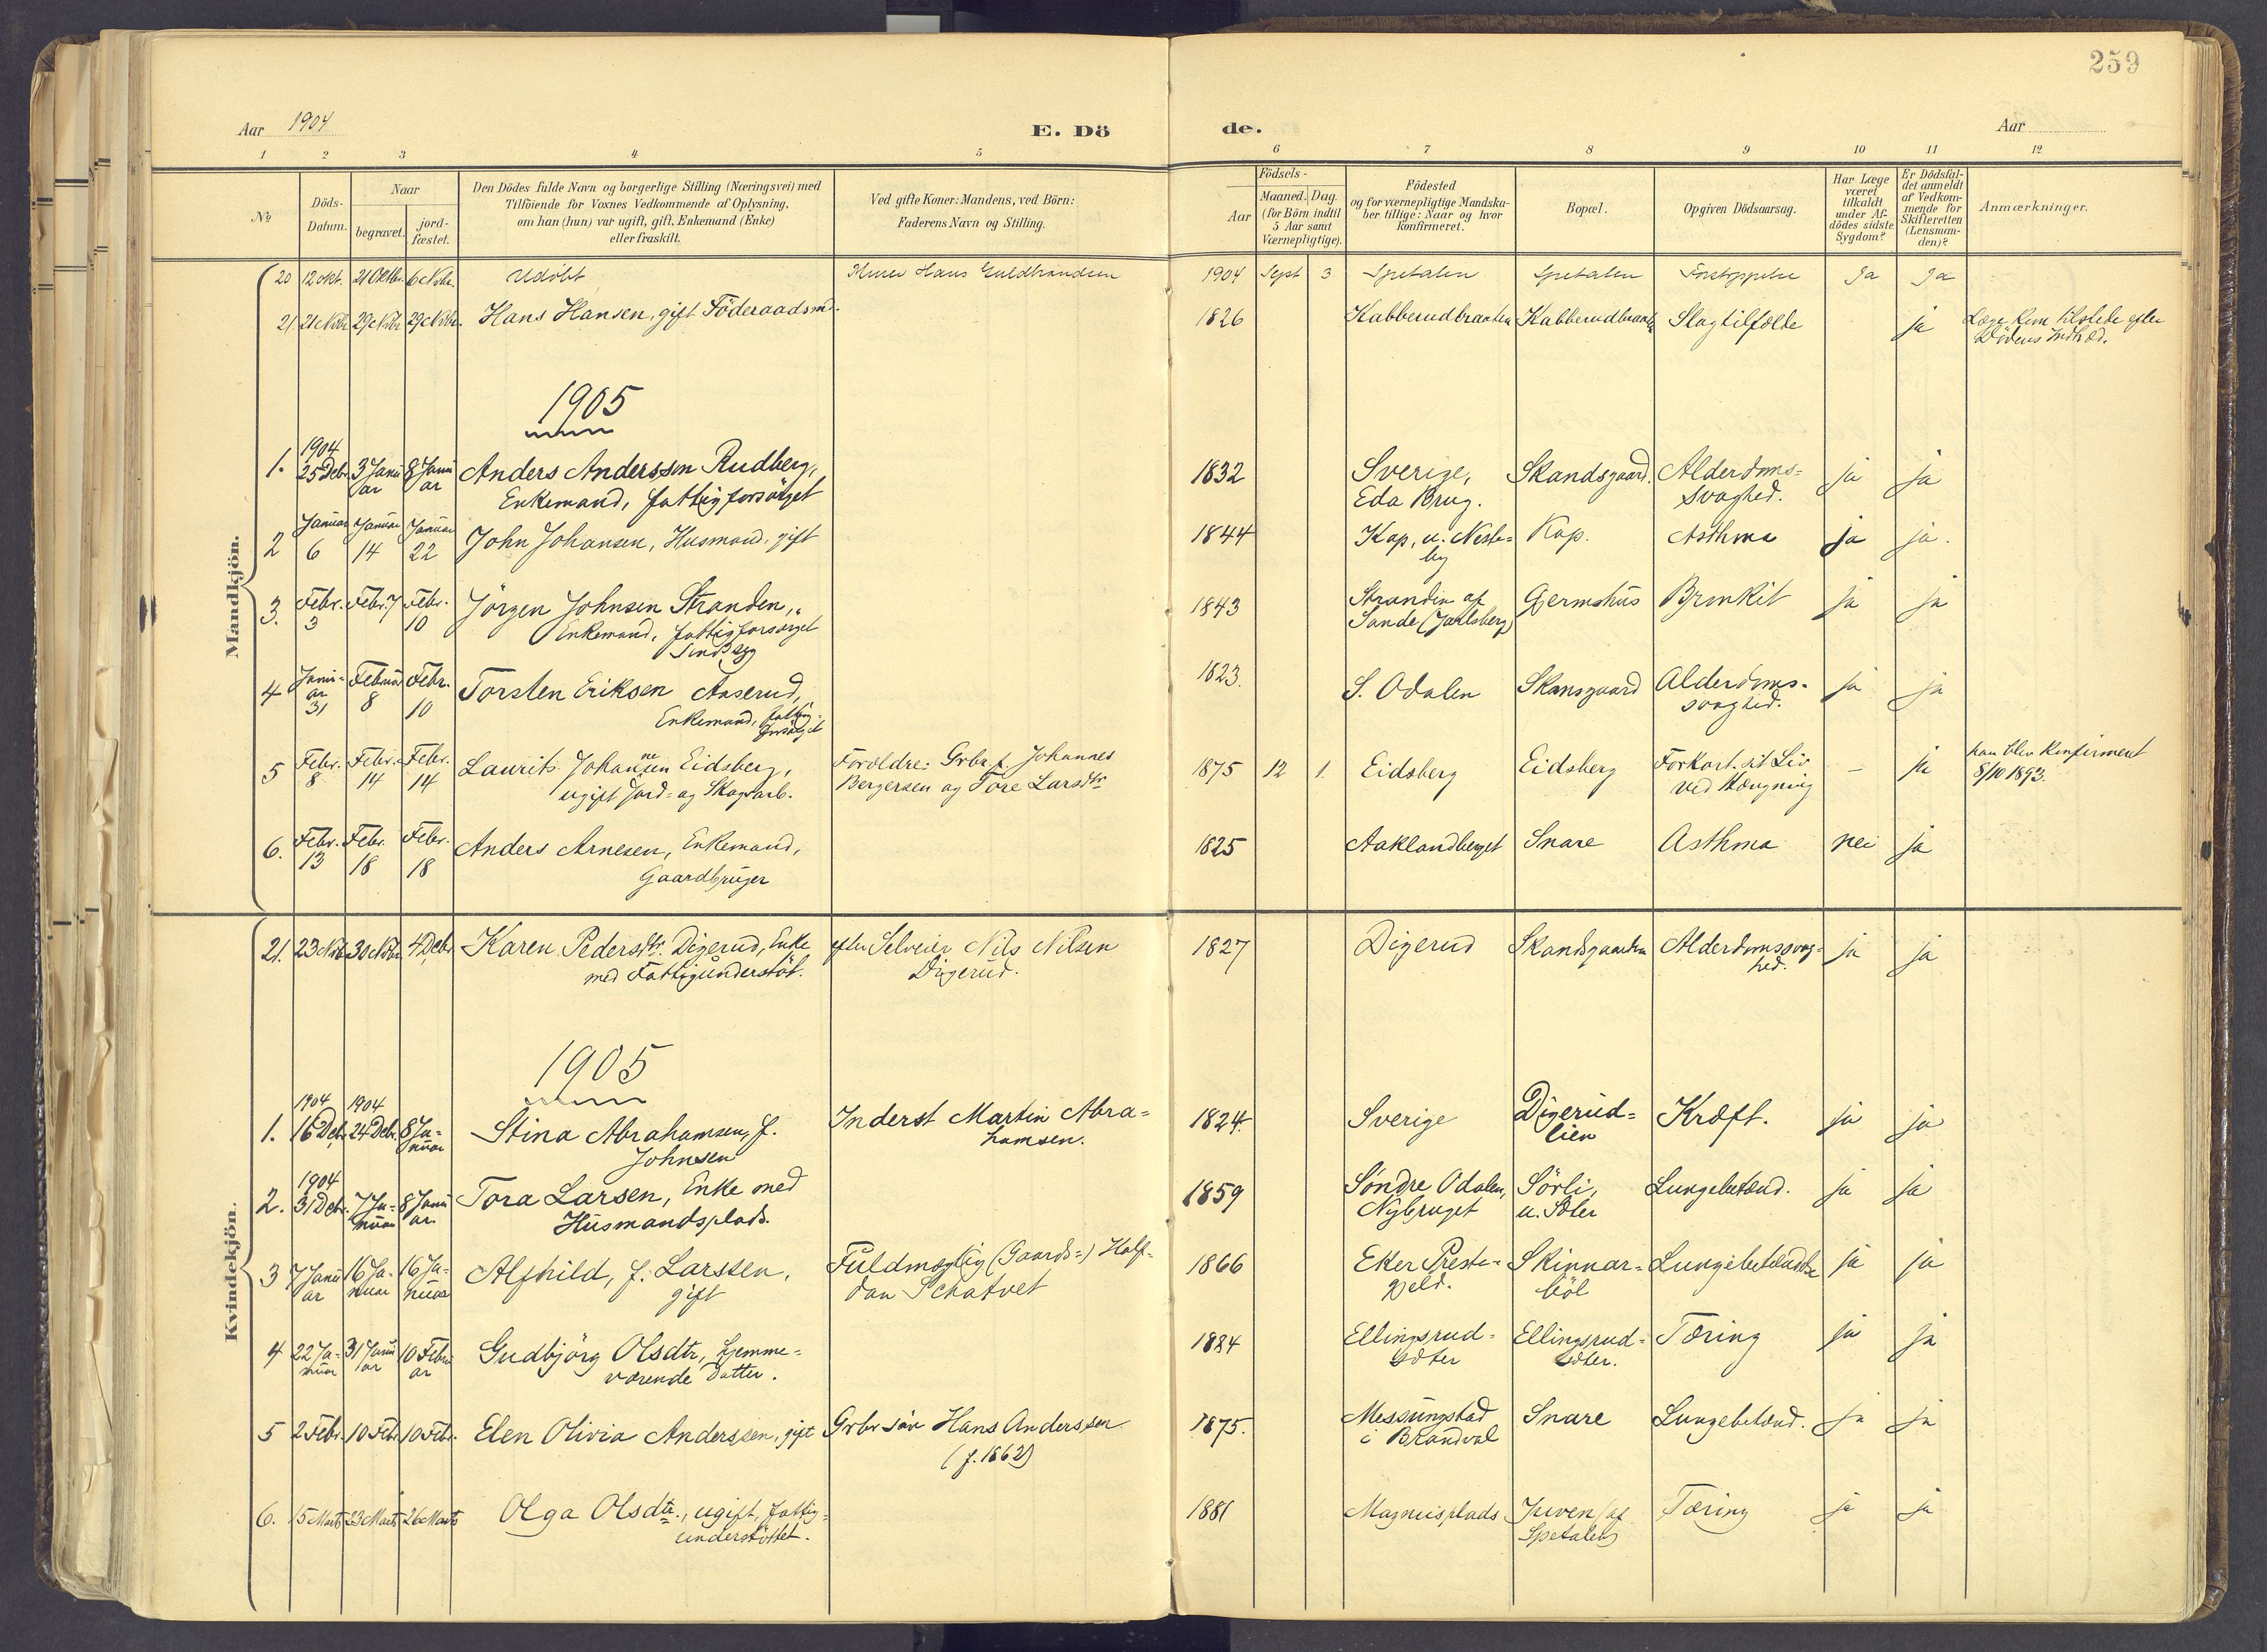 259
Aar 1904 E. Dö de. Aar
1 2 3 4 5 6 7 8 9 10 11 12
No
Döds-
Datum.
Naar
begravet.
jord-
fæstet.
Den Dödes fulde Navn og borgerlige Stilling (Næringsvei) med
Tilföiende for Voxnes Vedkommende af Oplysning,
om han (hun) var ugift, gift, Enkemand (Enke)
eller fraskilt.
Ved gifte Koner: Mandens, ved Börn:
Faderens Navn og Stilling.
Födsels-
Aar
Maaned. Dag
(for Börn indtil
5 Aar samt
Værnepligtige).
Födested
og for værnepligtige Mandska-
ber tillige: Naar og hvor
konfirmeret.
Bopæl.
Opgiven Dödsaarsag.
Har Læge
været
tilkaldt
under Af-
dödes sidste
Sygdom?
Er Dödsfal-
det anmeldt
af Vedkom-
mende for
Skifteretten
(Lensman-
den)?
Anmærkninger.
Mandkjön.
20 12 okt. 21 Oktbr. 6 Novbr. Udöbt Murer Hans Guldbrandsen 1904 Sept 3 Spetalen Spetalen Forstoppelse Ja Ja
21. 21 Novbr 29 Novbr 29 Novbr. Hans Hansen, gift Föderaadsmd. 1826 Kabberudbraaten Kabberudbraaten Slagtilfælde ja Læge kom tilstede efter
Dödens Indtræd.
1905
1. 1904
25 Debr. 3 Janu
ar 8 Janu
ar Anders Anderssen Rudberg,
Enkemand, fattigforsörget 1832 Sverige,
Eda Brug. Skandsgaard. Alderdoms=
svaghed. ja ja
2 Januar
6 Januar
14 Januar
22 John Johansen, Husmand, gift 1844 Kap, u. Neste=
by Kap. Asthma ja ja.
3. Febr.
3 Febr. 7 Febr.
10 Jörgen Johnsen Stranden,
Enkemand, fattigforsörget
Sindssyg 1843 Stranden af
Sande (Jarlsberg) Gjermshus Bronkit ja ja
4 Janu=
ar
31 Februar
8 Febr.
10 Torsten Eriksen Aaserud,
Enkemand, fattig-
forsörget 1823. S. Odalen Skansgaard Alderdoms-
svaghed. ja ja
5 Febr.
8 Febr.
14 Febr.
14 Laurits Johannesen Eidsberg,
ugift Jord- og Skogsarb. Forældre: Grbr f. Johannes
Bergersen og Tore Larsdtr 1875 12 1. Eidsberg Eidsberg Forkort. sit Liv
ved Hængning – ja han blev konfirmeret
8/10 1893.
6. Febr.
13 Febr.
18 Febr.
18 Anders Arnesen, Enkemand,
Gaardbruger 1825 Aaklandberget Snare Asthma nei ja
Kvindekjön.
21. 23 Novbr 30 Novbr 4 Debr Karen Pedersdtr. Digerud, Enke
med Fattigunderstöt. efter Selveier Nils Nilsen
Digerud. 1827 Digerud Skandsgaarden Alderdomssvag=
hed. ja ja
1905
1. 1904
16 Debr. 1904
24 Debr. 8 Ja=
nuar Stina Abrahamsen, f.
Johnsen Inderst Martin Abra=
hamsen. 1824. Sverige Digerud=
lien Kræft. ja ja
2. 1904
31 Debr. 7 Ja=
nuar 8 Janu
ar. Tora Larsen, Enke med
Husmandsplads. 1859 Söndre Odalen,
Nybruget Sörli,
u. Sæter Lungebetænd. ja ja
3 7 Janu
ar 16 Ja-
nuar 16 Ja-
nuar Alfhild, f. Larssen,
gift Fuldmægtig (Gaards=) Half-
dan Schatvet 1866 Eker Preste=
gjeld. Skinnar=
böl Lungebetændelse ja ja
4 22 Ja-
nuar 31 Janu
ar 10 Febru
ar Gudbjörg Olsdtr, hjemme=
værende Datter. 1884 Ellingsrud=
sæter Ellingsrud=
sæter. Tæring ja ja
5 2 Febr. 10 Febr. 10 Febr. Elen Olivia Anderssen, gift Grbr sön Hans Anderssen
(f. 1862) 1875. Messungstad
i Brandval Snare Lungebetænd. ja ja
6. 15 Marts 23 Marts 26 Marts Olga Olsdtr., ugift, fattig=
understöttet. 1881 Magnusplads Juven (af
Spetalen) Tæring ja ja